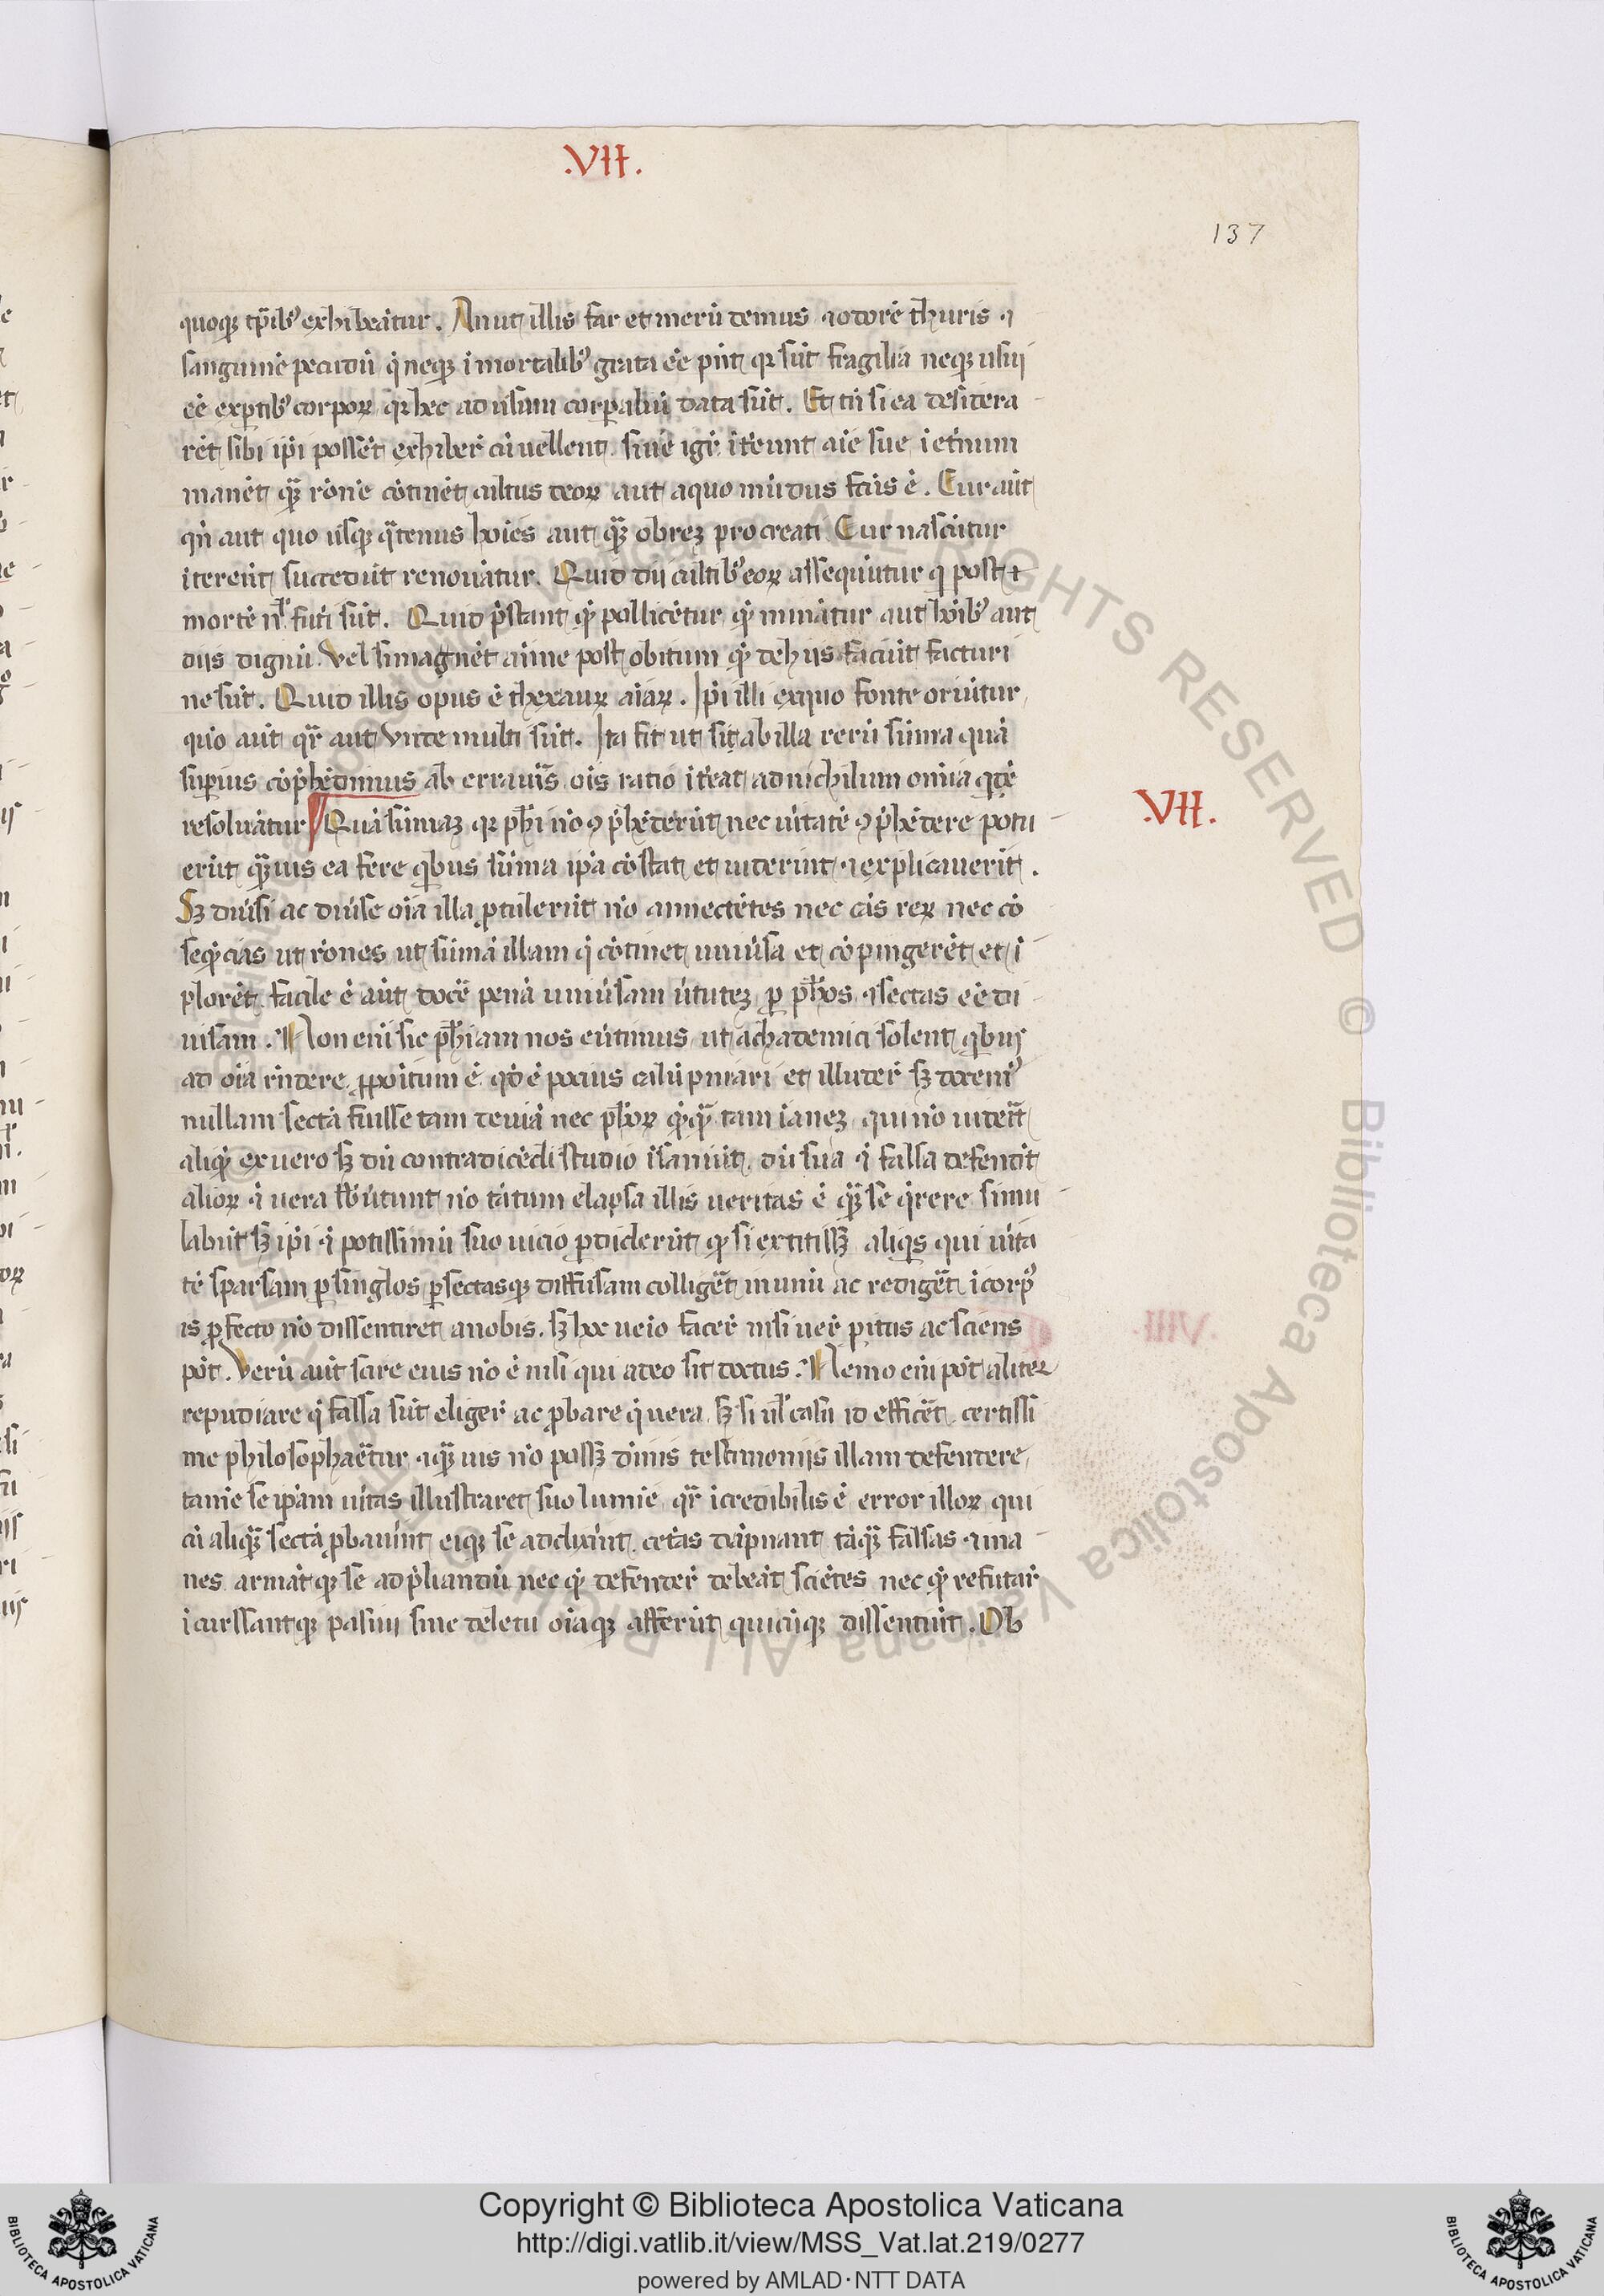 .VII.
137
quoqꝫ tp̄ibꝰ exhibeātur. An ut illis far et merū demus ⁊ odorē thuris ⁊
sanguinē pecudū q̄ neqꝫ īmortalibꝰ grata eē pn̄t qꝛ sūt fragilia neqꝫ usuj
eē exptibꝰ corpoꝝ qꝛ hec ad usum corꝑaliū data sūt. Et tn̄ si ea desidera
rēt sibi ip̄i possēt exhiber̄ cū vellent. siue igr̄ īteunt aīe siue ī et̄num
manēt quā rōnē cōtinēt cultus deoꝝ aut a quo mūdus fcūs ē. Cur aūt
qn̄ aut quo usqꝫ q̄tenus hoīes aut quā ob rem procreati Cur nascūtur
itereūt succedūt renouātur. Quid dij cultibꝰ eoꝝ assequūtur q̄ post
mortē nl̄ fut̄i sūt. Quid p̄stant qd̄ pollicētur qd̄ minātur aut hoībꝰ aut
dijs dignū. Vel si magnēt aīme post obitum qd̄ de hijs faciūt facturi
ne sūt. Quid illis opus ē thexauꝝ aīaꝝ. Ip̄i illi ex quo fonte oriūtur
quō aūt qr̄ aut unde multi sūt. Ita fit ut si ab illa rerū sūma quā
suꝑius cōp̄hēdimus aberrauīs oīs ratio īteat ad nichilum omīa qdē
resoluātur Quā sūmaꝫ qꝛ ph̄i nō ꝯp̄hēderūt nec ūitatē ꝯp̄hēdere potu
VII.
erūt quāuis ea fere qͥbus sūma ip̄a cōstat et uiderint ⁊ explicauerīt.
Sꝫ diūsi ac diūse oīa illa ꝓtulerūt nō annectētes nec cās reꝝ nec cō
seq̄cias ut rōnes ut sūmā illam q̄ cōtinet uniūsa et cōpingerēt et ī
plorēt. facile ē aūt docē penā uniūsam ūitateꝫ ꝑ ph̄os ⁊ sectas eē di
uisam. Non enī sic ph̄iam nos eūtimus ut achademici solent qͥbus
ad oīa rn̄dere ꝓpoītum ē. qd̄ ē pocius calūpniari et illuder̄ sꝫ docemꝰ
nullam sectā fuisse tam deuiā nec ph̄oꝝ quēquā tam īaneꝫ qui nō uidet̄
aliqd̄ ex uero sꝫ dū contradicēdi studio īsaniūt. dū sua ⁊ falsa defendūt
alioꝝ ⁊ uera sb̄ūtunt nō tātum elapsa illis ueritas ē quā se q̄rere simu
labūt sꝫ ip̄i q̄ potissimū suo uicio ꝑdiderūt qd̄ si extitissꝫ aliqͥs qui ūita
tē sparsam ꝑ singlos ꝑ sectasqꝫ diffusam colliget̄ in unū ac rediget̄ ī corpꝰ
is ꝓfecto nō dissentiret a nobis. sꝫ hoc nemo facer̄ nisi uer̄ peritus ac sciens
pōt. Verū aūt scire eius nō ē nisi qui a deo sit doctus. Nemo enī pōt aliter
repudiare q̄ falsa sūt eliger̄ ac ꝓbare q̄ uera. sꝫ si ul̄ casu id efficēt certissi
me philosophaēt̄ur ⁊ quāuis nō possꝫ dīuinis testimonijs illam defendere
tamē se ip̄am ūitas illustraret suo lumīe. qr̄ īcredibilis ē error illoꝝ qui
cū aliquā sectā ꝓbaūint eiqꝫ se addixīnt. cet̄as dāpnant tāquā falsas ⁊ ina
nes. armātqꝫ se ad p̄liandū nec qd̄ defender̄ debeāt sciētes nec qd̄ refutar̄
īcurssantqꝫ passim sine deletu oīaqꝫ afferūt quicūqꝫ dissentiūt. Ob
Copyright © Biblioteca Apostolica Vaticana
http://digi.vatlib.it/view/MSS_Vat.lat.219/0277
powered by AMLAD·NTT DATA
BIBLIOTECA APOSTOLICA VATICANA
BIBLIOTECA APOSTOLICA VATICANA